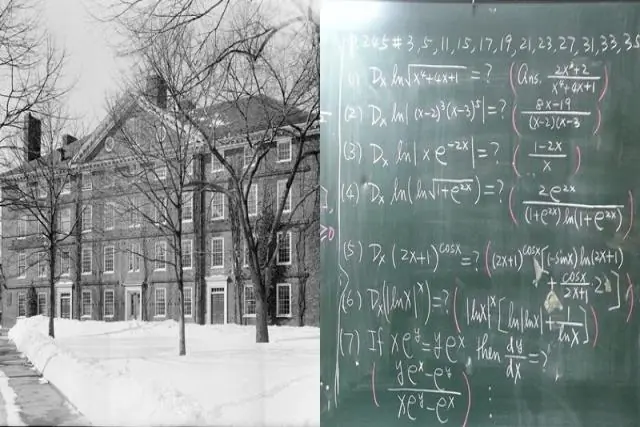 P.245 # 3, 5, 11, 15, 17, 19, 21, 23, 27, 31, 33, 35
(1) Dₓ ln√(x⁴+4x+1) = ? (Ans. (2x³+2)/(x⁴+4x+1))
(2) Dₓ ln|(x-2)³(x-3)⁵| = ? ((8x-19)/((x-2)(x-3))
(3) Dₓ ln|x e^(-2x)| = ? ((1-2x)/x)
(4) Dₓ ln(ln√(1+e^(2x))) = ? (2e^(2x)/((1+e^(2x)) ln(1+e^(2x))))
(5) Dₓ (2x+1)^(cosx) = ? ((2x+1)^(cosx) [(-sinx) ln(2x+1) + cosx/(2x+1) · 2])
(6) Dₓ(|lnx|^x) = ? (|lnx|^x [ln|lnx| + 1/lnx])
(7) If xe^y = ye^x then dy/dx = ?
((ye^x - e^y)/(xe^y - e^x))